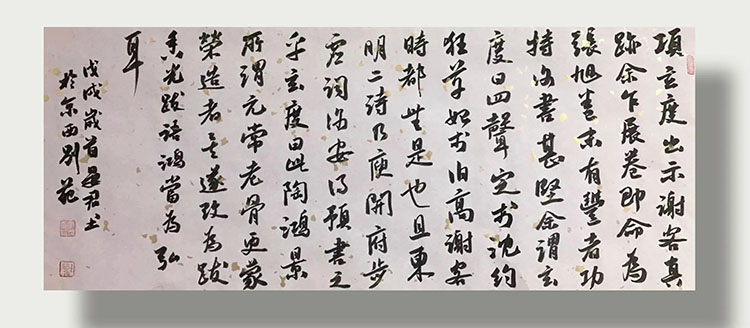 項玄度出示謝客真
跡余乍展卷即命為
張旭卷末有豐考功
持謝書甚堅余謂玄
度曰四聲定於沈約
狂草始於伯高謝客
時都無是也且東
明二詩乃庾開府步
虛詞謝安得預書之
乎玄度曰此陶鴻景
所謂元常老骨更蒙
榮造者矣遂改為跋
香光跋語鴻當為弘
耳
戊戌歲首君書
於京西別苑